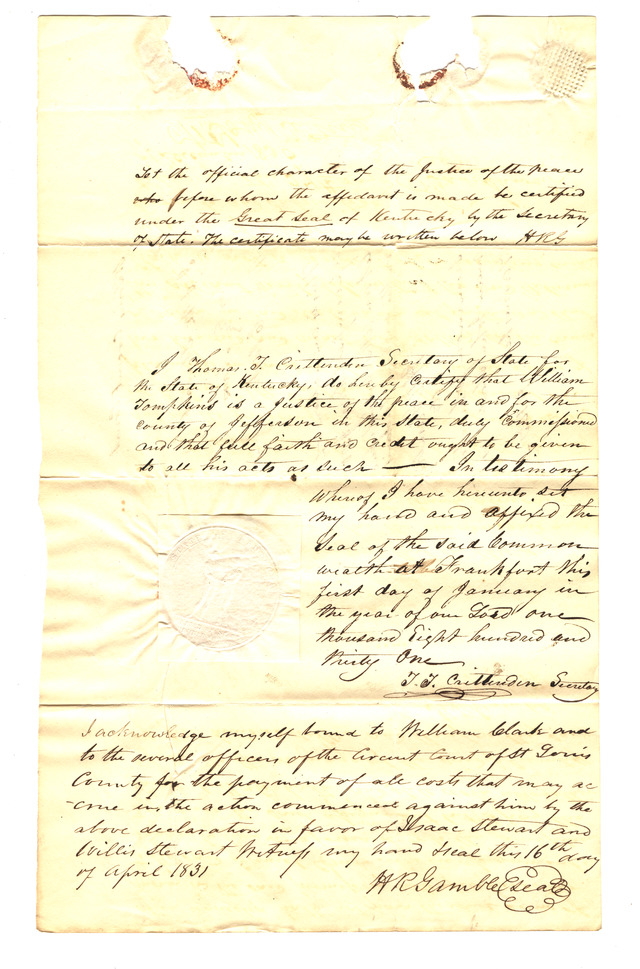 Let the official character of the Justice of the peace
who before whom the affidavit is made be certified
under the Great Seal of Kentucky by the Secretary
of State. The certificate may be written below HRG
I Thomas T. Crittenden Secretary of State for
the State of Kentucky, do hereby Certify that William
Tompkins is a Justice of the peace in and for the
County of Jefferson in this State, duly Commissioned
and that full faith and credit ought to be given
to all his acts as such — In testimony
Whereof I have hereunto set
my hand and affixed the
Seal of the said Common
wealth at Frankfort this
first day of January in
the year of our Lord one
thousand Eight hundred and
thirty One
T. T. Crittenden Secretary
I acknowledge myself bound to William Clark and
to the several officers of the Circuit Court of St Louis
County for the payment of all costs that may ac
-crue in the action commenced against him by the
above declaration in favor of Isaac Stewart and
Willis Stewart Witness my hand & seal this 16th day
of April 1831
H R Gamble seal